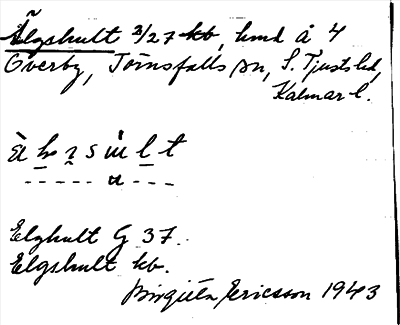 Älgshult 2/27 kb, hmd å 4
Överby, Törnsfalls sn, S. Tjusts hd,
Kalmar l.
Elghult G 37.
Elgshult kb.
Birgitta Ericsson 1943